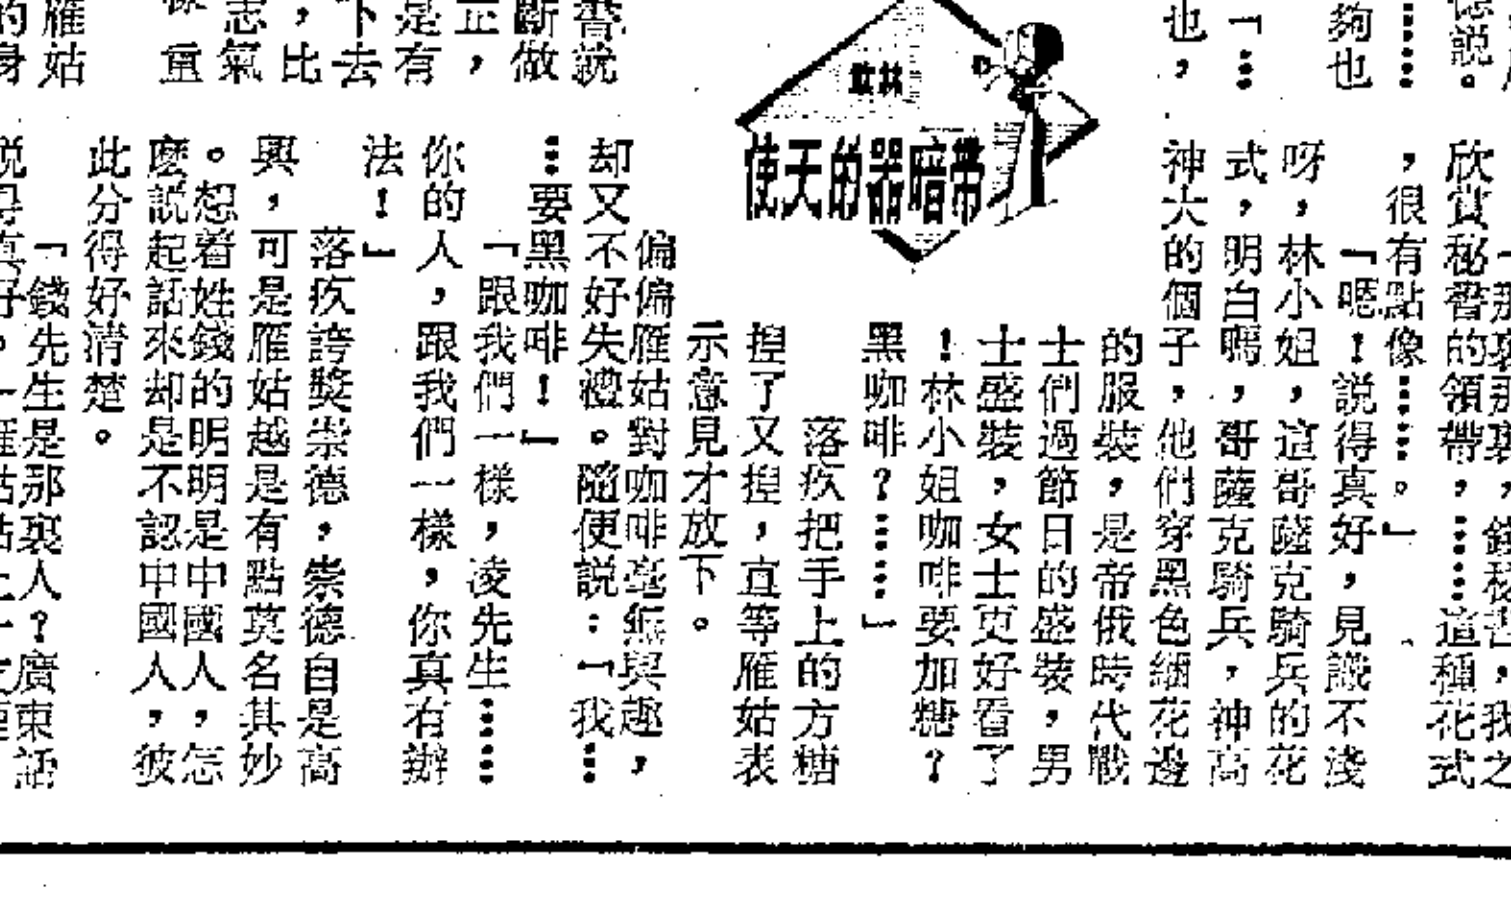 德説。
……
夠也
「…
也，
帶暗器的天使
書説
斷做
正，
是有
下去
，比
志氣
重
雁姑
的身
「那裏那裏，錢秘書，我之
欣賞秘書的領帶，……這種花式
，很有點像……。」
「嗯！説得真好，見識不淺
呀，林小姐，這哥薩克騎兵的花
式，明白嗎，哥薩克騎兵，神高
神大的個子，他們穿黑色綑花邊
的服裝，是帝俄時代戰
士們過節日的盛裝，男
士盛裝，女士更好看了
！林小姐咖啡要加糖？
黑咖啡？……」
落疚把手上的方糖
揑了又揑，直等雁姑表
示意見才放下。
偏偏雁姑對咖啡毫無興趣，
却又不好失禮。隨便説：「我…
…要黑咖啡！」
「跟我們一樣，凌先生……
你的人，跟我們一樣，你真有辦
法！」
落疚誇獎崇德，崇德自是高
興，可是雁姑越是有點莫名其妙
。想着姓錢的明明是中國人，怎
麽説起話來却是不認中國人，彼
此分得好清楚。
「錢先生是那裏人？廣東話
説得真好。